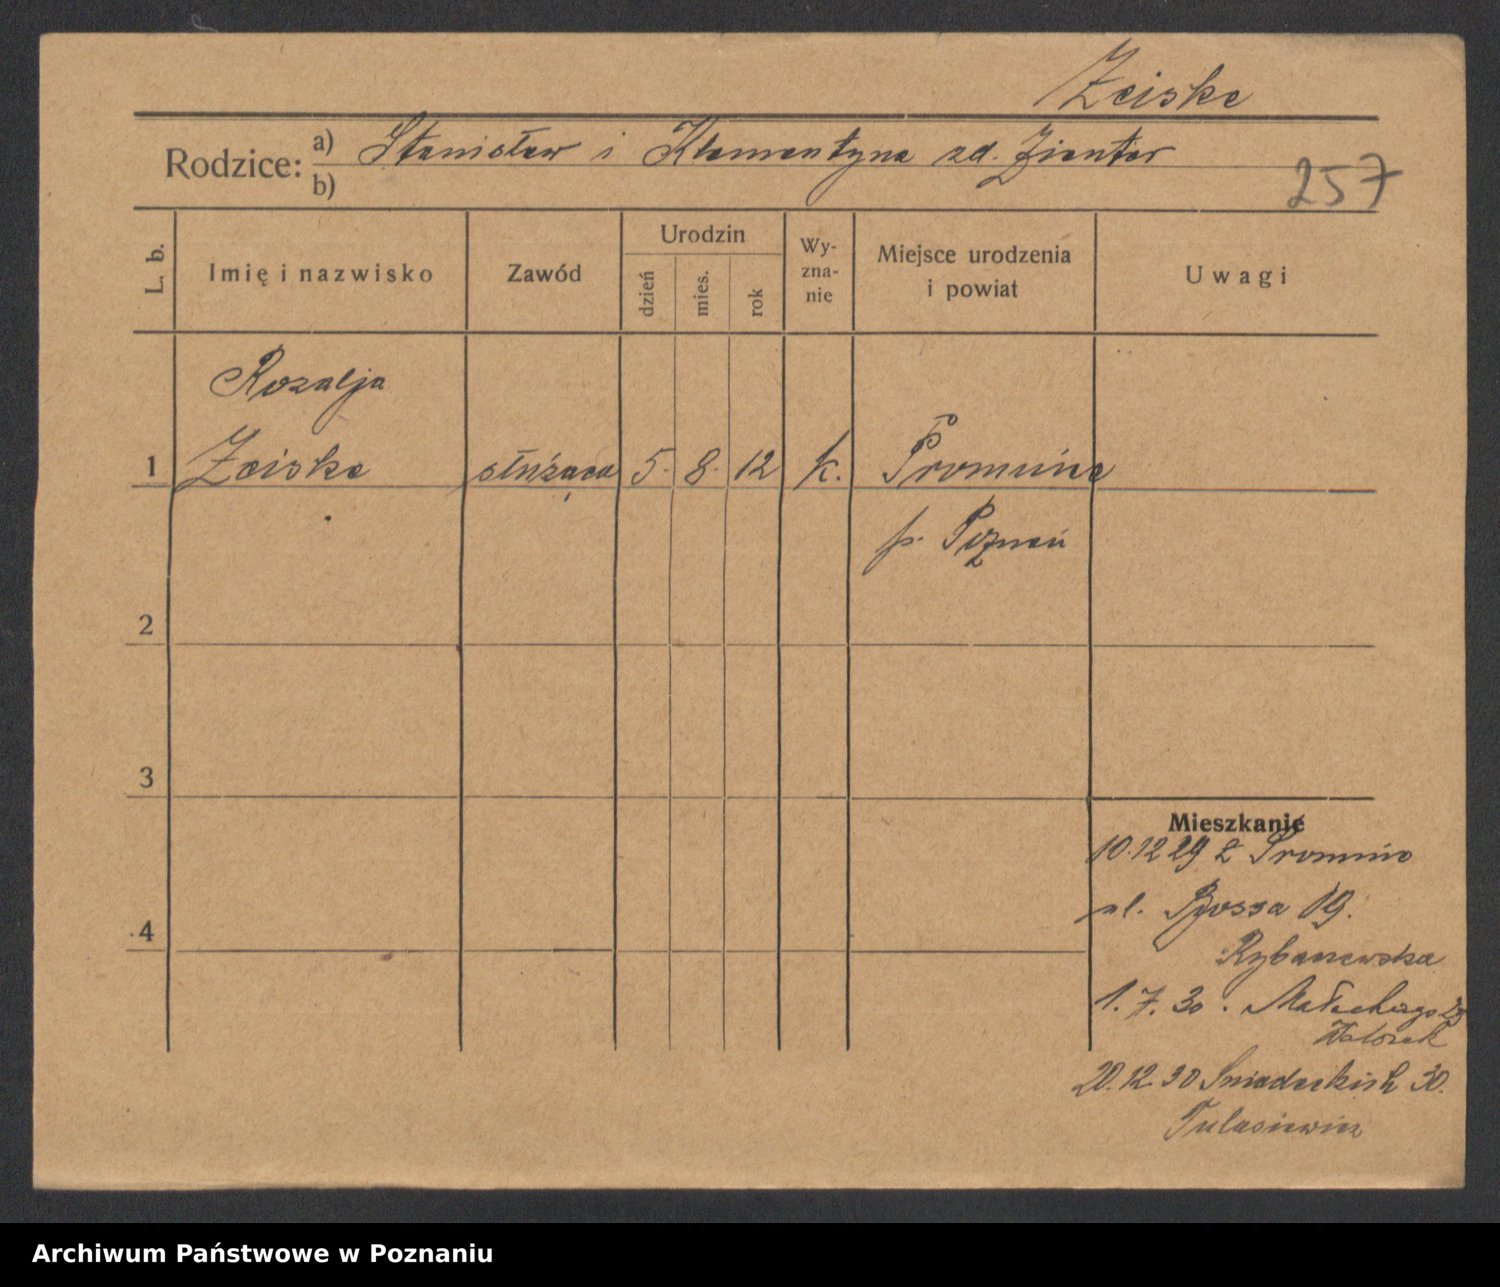 Zeiske
Rodzice: a) Stanisław i Klementyna zd. Zientar
b)
257
L. b.
Imię i nazwisko
Zawód
Urodzin
dzień
mies.
rok
Wy-
zna-
nie
Miejsce urodzenia
i powiat
Uwagi
Rozalja
1 Zeiske służąca 5. 8. 12 k. Promnice
p. Poznań
2
3
4
Mieszkanie
10.12 29 z Promnic
ul. 19.
Rybaczewska
1. 7. 30. Małachowskiego 23
Walczak
20.12.30 Śniadeckich 30.
Tulasiewicz
Archiwum Państwowe w Poznaniu